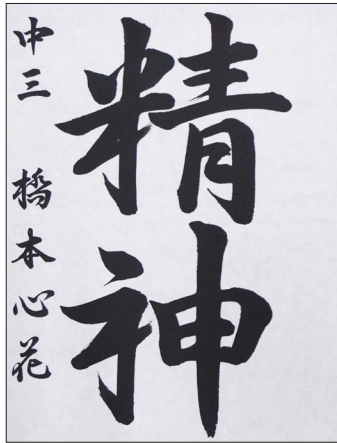 精神
中三 橋本心花